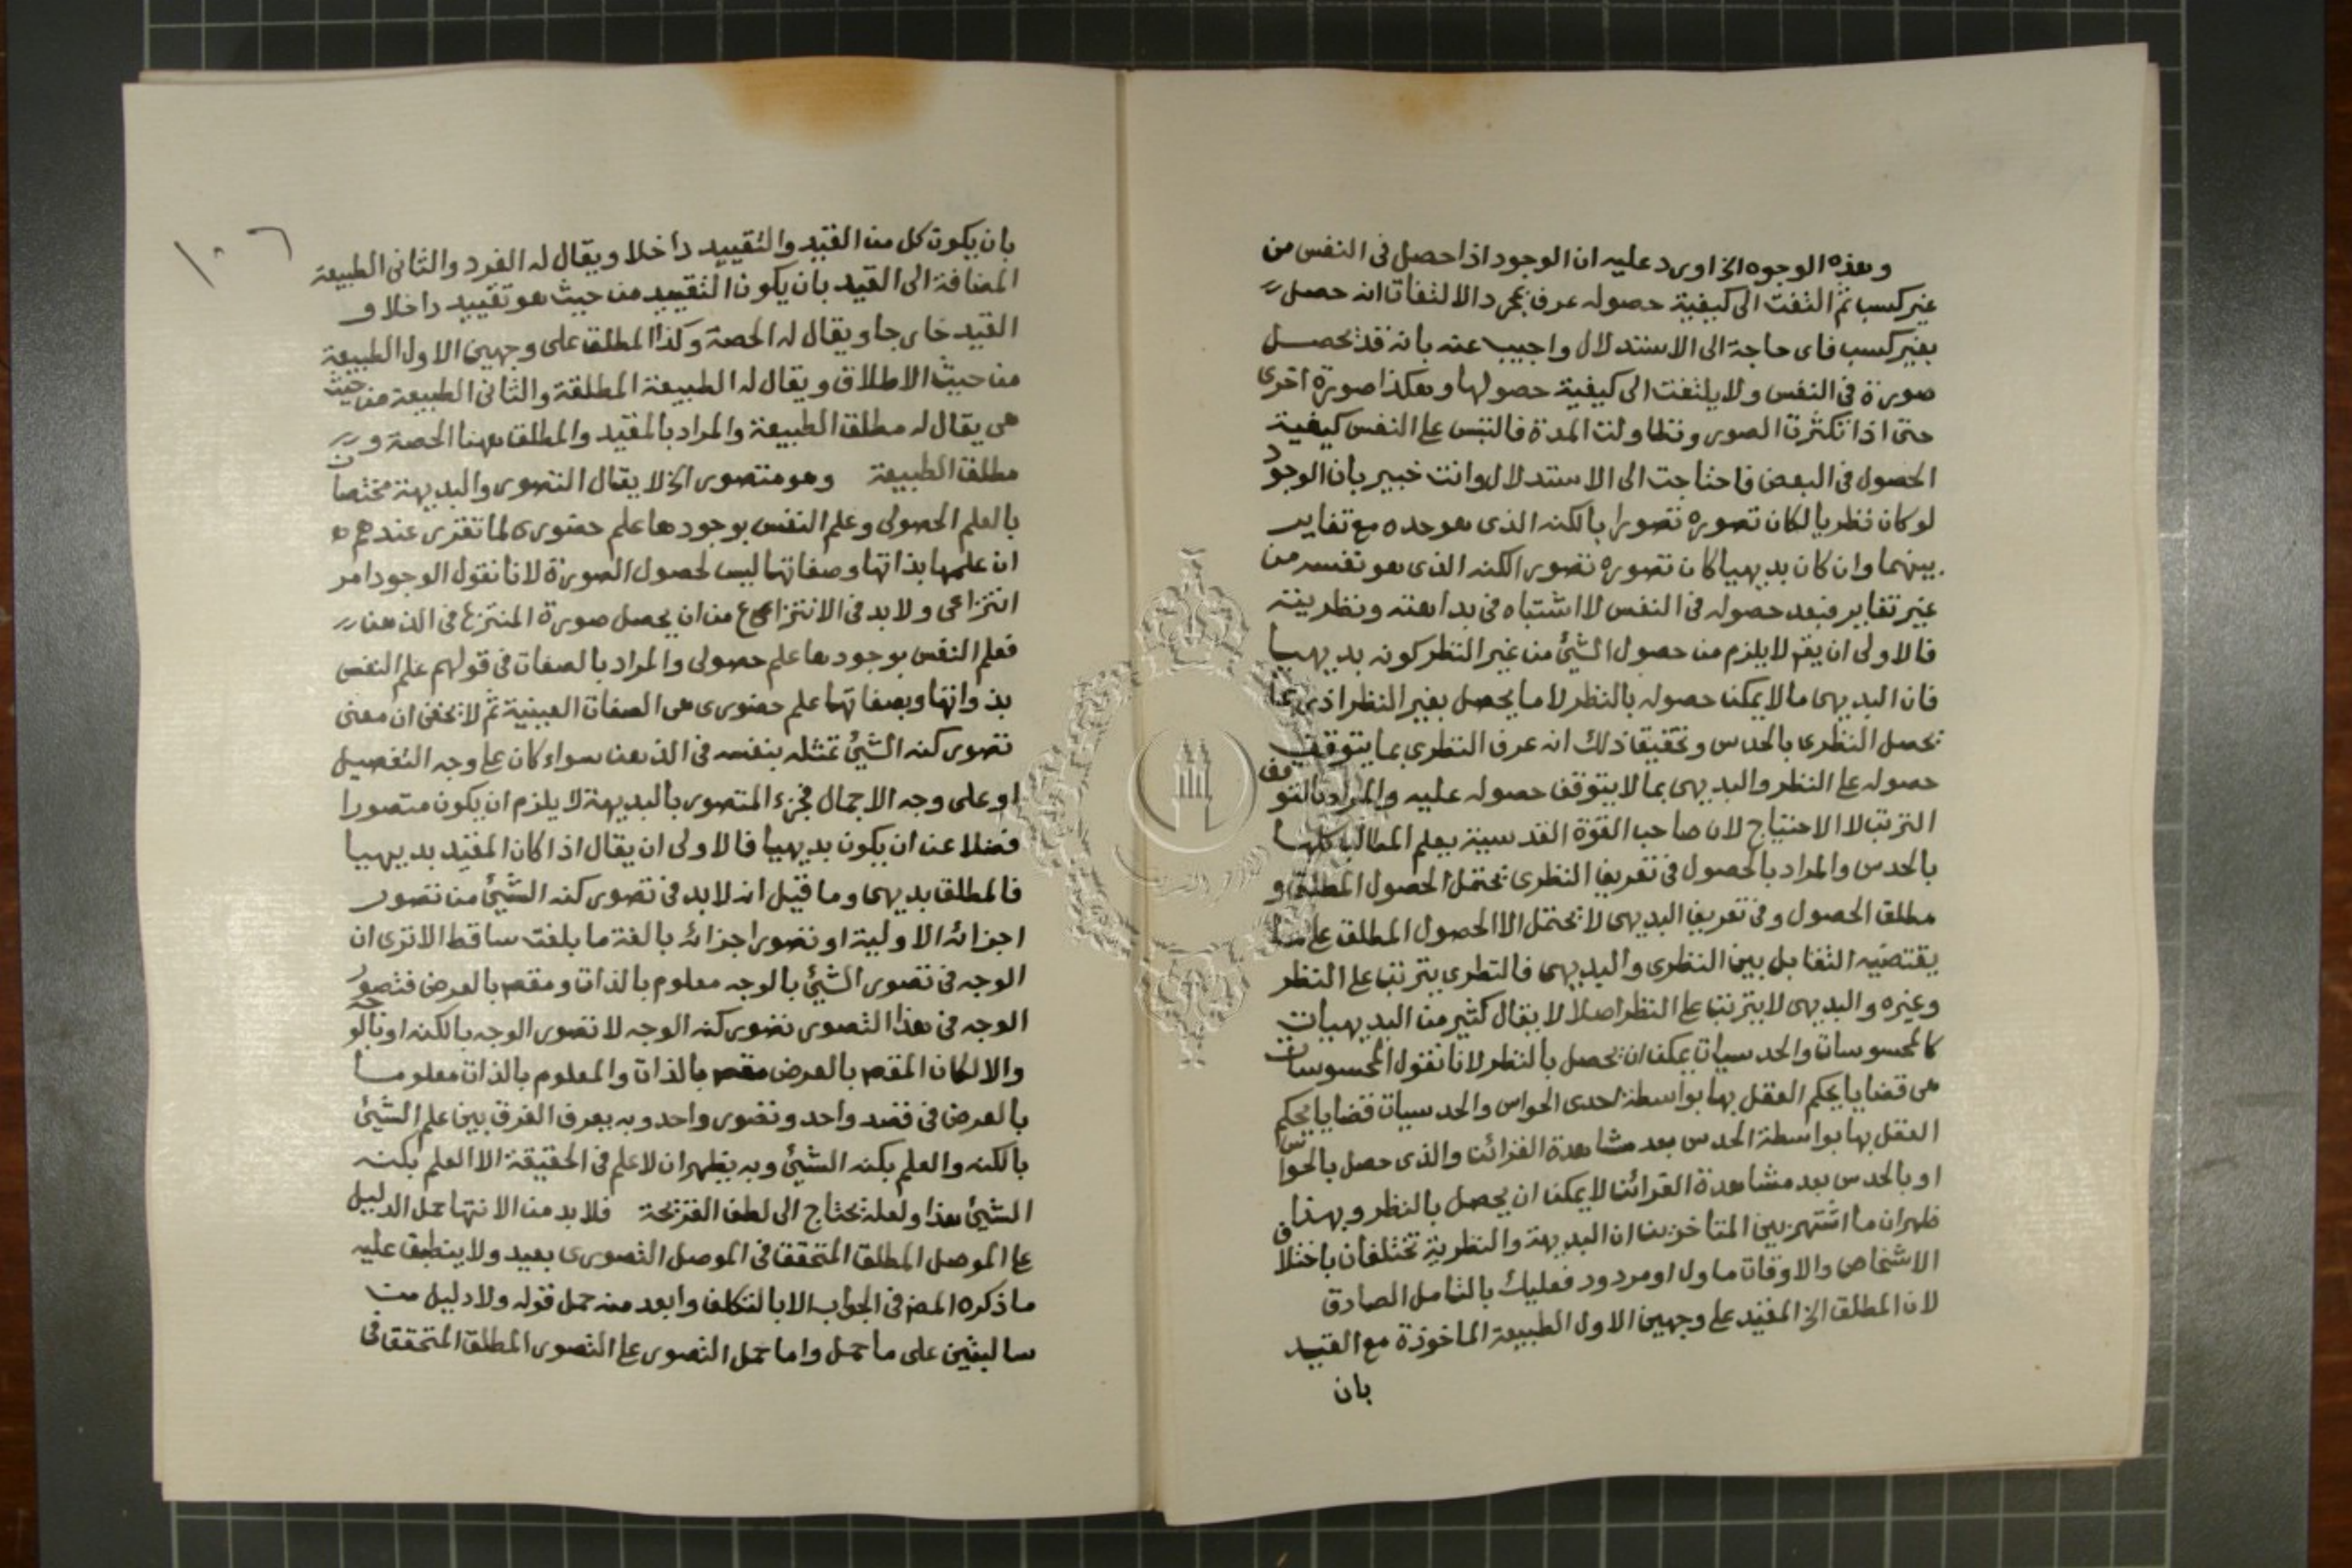 وهذه الوجوه الخ اورد عليه ان الوجود اذا حصل في النفس من
غير كسب ثم التفت الى كيفية حصوله عرف بمجرد الالتفات انه حصل
بغير كسب فاى حاجة الى الاستدلال واجيب عنه بانه قد تحصل
صورة في النفس ولا يلتفت الى كيفية حصولها وهكذا صورة اخرى
حتى اذا تكثرت الصور وتطاولت المدة فالتبس على النفس كيفية
الحصول في البعض فاحتاجت الى الاستدلال وانت خبير بان الوجود
لو كان نظريا لكان تصوره تصورا بالكنه الذى هو حده مع تغاير
بينهما وان كان بديهيا كان تصوره تصور الكنه الذى هو نفسه من
غير تغاير فبعد حصوله في النفس لا اشتباه في بداهته ونظريته
فالاولى ان يقم لا يلزم من حصول الشئ من غير النظر كونه بديهيا
فان البديهى ما لا يمكن حصوله بالنظر لا ما يحصل بغير النظر اذ ربما
تحصل النظرى بالحدس وتحقيق ذلك انه عرف النظرى بما يتوقف
حصوله على النظر والبديهى بما لا يتوقف حصوله عليه والمراد بالتوقف
الترتب لا الاحتياج لان صاحب القوة القدسية يعلم المطالب كلها
بالحدس والمراد بالحصول في تعريف النظرى تحتمل الحصول المطلق و
مطلق الحصول وفى تعريف البديهى لا تحتمل الا الحصول المطلق على ما
يقتضيه التقابل بين النظرى والبديهى فالنظرى يترتب على النظر
وغيره والبديهى لا يترتب على النظر اصلا لا يقال كثير من البديهيات
كالمحسوسات والحدسيات يمكن ان تحصل بالنظر لانا نقول المحسوسات
هى قضايا يحكم العقل بها بواسطة احدى الحواس والحدسيات قضايا يحكم
العقل بها بواسطة الحدس بعد مشاهدة القرائن والذى حصل بالحواس
او بالحدس بعد مشاهدة القرائن لا يمكن ان يحصل بالنظر وبهذا
ظهر ان ما اشتهر بين المتاخرين ان البديهة والنظرية تختلفان باختلاف
الاشخاص والاوقات ماول او مردود فعليك بالتامل الصادق
لان المطلق الخ المقيد على وجهين الاول الطبيعة الماخوذة مع القيد
بان
١٠٦
بان يكون كل من القيد والتقييد داخلا ويقال له الفرد والثانى الطبيعة
المضافة الى القيد بان يكون التقييد من حيث هو تقييد داخلا و
القيد خارجا ويقال له الحصة وكذا المطلق على وجهين الاول الطبيعة
من حيث الاطلاق ويقال له الطبيعة المطلقة والثانى الطبيعة من حيث
هى يقال له مطلق الطبيعة والمراد بالمقيد والمطلق ههنا الحصة و
مطلق الطبيعة وهو متصور الخ لا يقال التصور والبديهة مختصان
بالعلم الحصولى وعلم النفس بوجودها علم حضورى لما تقرر عندهم
ان علمها بذاتها وصفاتها ليس لحصول الصورة لانا نقول الوجود امر
انتزاعى ولا بد في الانتزاعى من ان يحصل صورة المنتزع في الذهن
فعلم النفس بوجودها علم حصولى والمراد بالصفات في قولهم علم النفس
بذواتها وبصفاتها علم حضورى هى الصفات العينية ثم لا تخفى ان معنى
تصور كنه الشئ تمثله بنفسه في الذهن سواء كان على وجه التفصيل
او على وجه الاجمال فجزء المتصور بالبديهة لا يلزم ان يكون متصورا
فضلا عن ان يكون بديهيا فالاولى ان يقال اذا كان المقيد بديهيا
فالمطلق بديهى وما قيل انه لا بد في تصور كنه الشئ من تصور
اجزائه الاولية او تصور اجزائه بالغة ما بلغت ساقط الا ترى ان
الوجه في تصور الشئ بالوجه معلوم بالذات ومقصم بالعرض فتصور
الوجه في هذا التصور تصور كنه الوجه لا تصور الوجه بالكنه او بالوجه
والا لكان المقصم بالعرض مقصم بالذات والمعلوم بالذات معلوما
بالعرض في قصد واحد وتصور واحد وبه يعرف الفرق بين علم الشئ
بالكنه والعلم بكنه الشئ وبه يظهر ان لا علم في الحقيقة الا العلم بكنه
الشئ هذا ولعله تحتاج الى لطف القريحة فلا بد من الانتها حمل الدليل
على الموصل المطلق المتحقق في الموصل التصورى بعيد ولا ينطبق عليه
ما ذكره المص في الجواب الا بالتكلف وابعد منه حمل قوله ولا دليل من
سالبتين على ما حمل واما حمل التصور على التصور المطلق المتحقق في